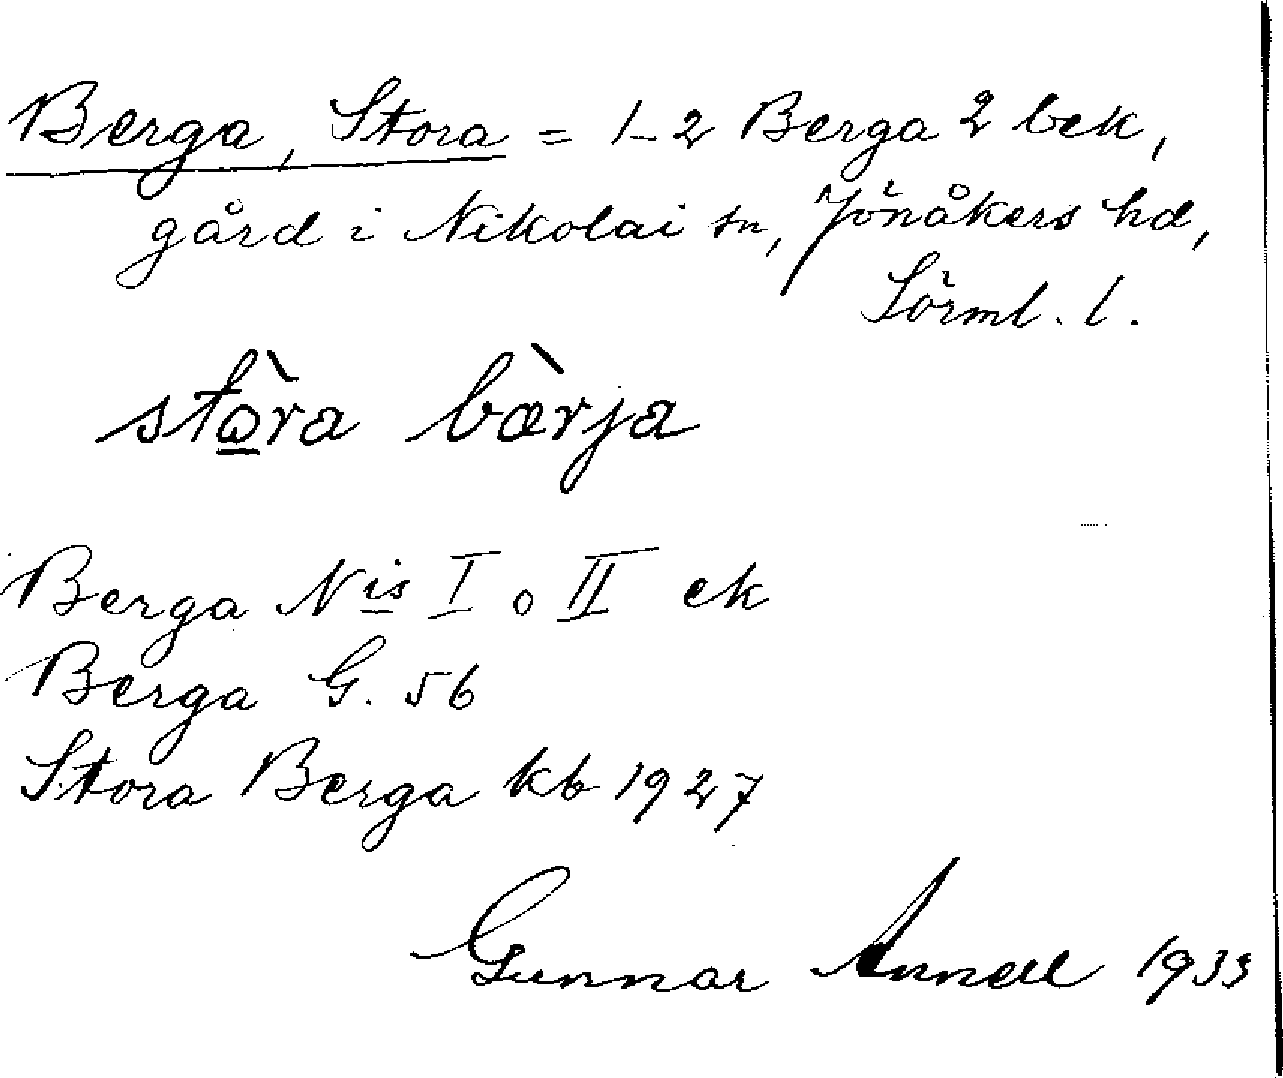 Berga, Stora = 1-2 Berga 2 bek,
gård i Nikolai sn, Jönåkers hd,
Sörml. l.
stὼ̲ra bæ̀rja
Berga Nis I o II ek
Berga G. 56
Stora Berga kb 1927
Gunnar Annell 1933